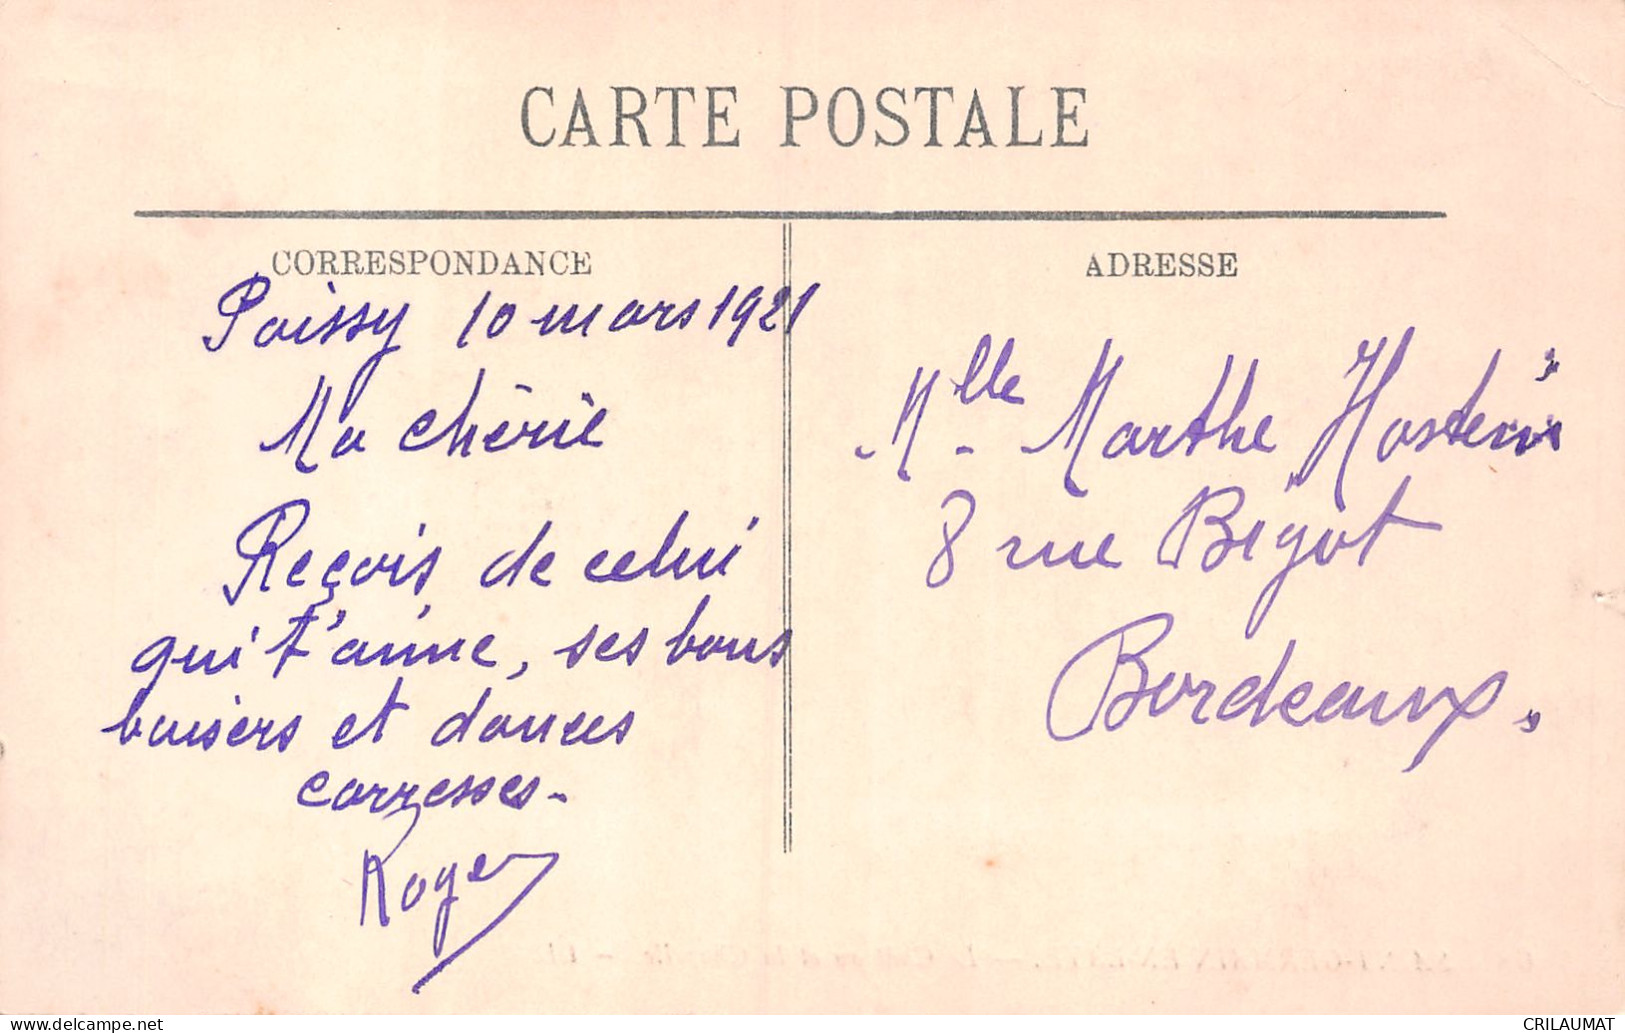 CARTE POSTALE
CORRESPONDANCE
Poissy 10 mars 1921
Ma chérie
Reçois de celui
qui t'aime, ses bons
baisers et douces
carresses -
Roger
ADRESSE
Mlle Marthe Hostein
8 rue Bigot
Bordeaux.
CRILAUMAT